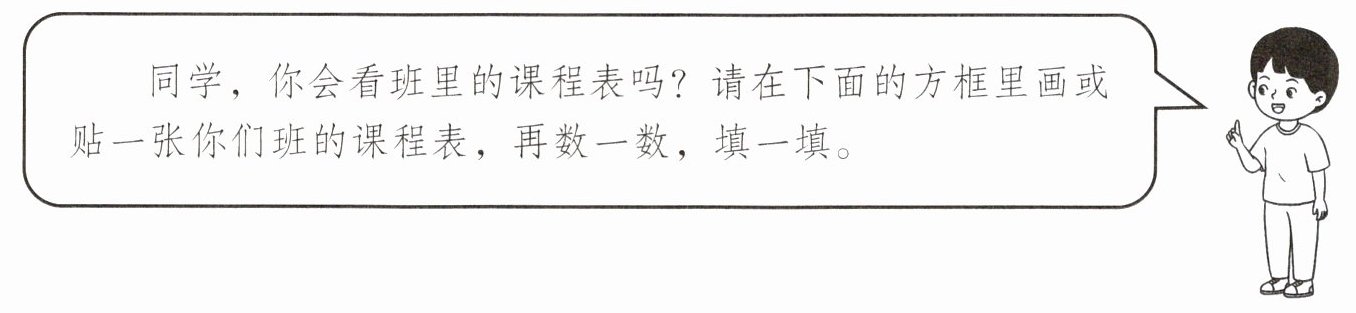 同学，你会看班里的课程表吗？请在下面的方框里画或
贴一张你们班的课程表，再数一数，填一填。